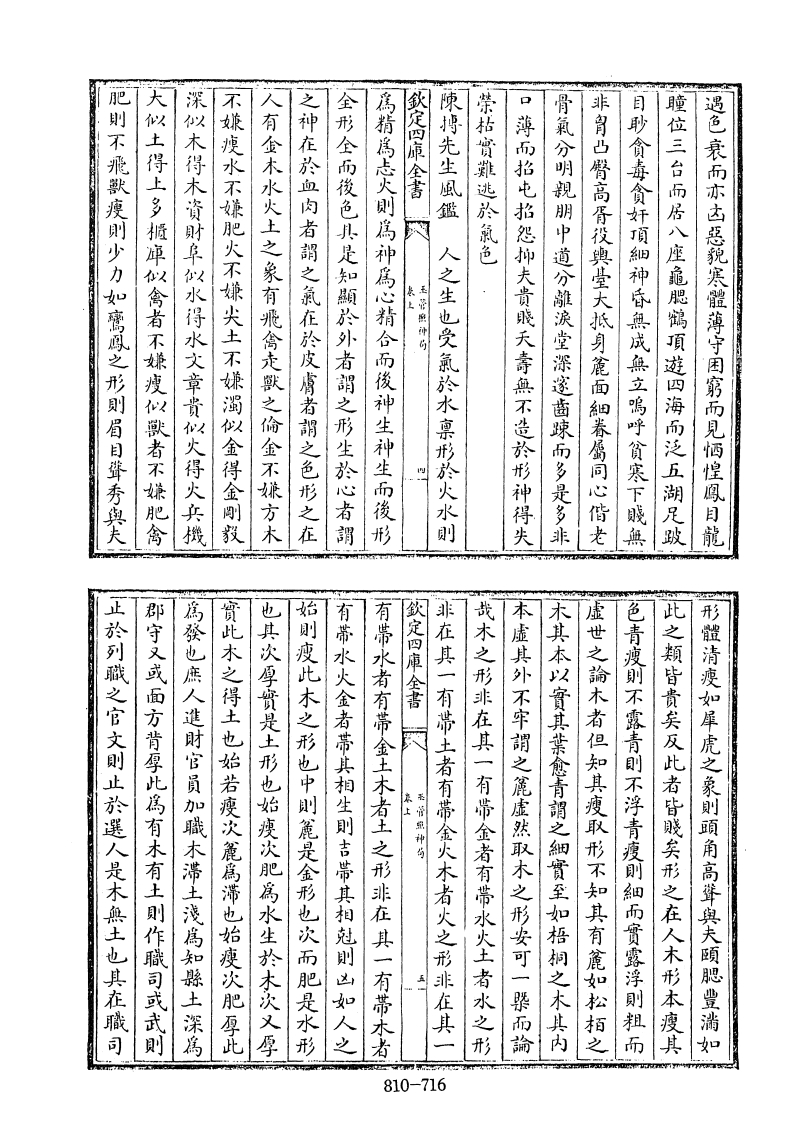 遇色衰而亦凶惡貌寒體薄守困窮而見恓惶鳳目龍
瞳位三台而居八座龜腮鶴頂遊四海而泛五湖足跛
目眇貪毒貪奸頂細神昏無成無立嗚呼貧寒下賤無
非胷凸臀高胥役輿臺大抵身麄面細眷屬同心偕老
骨氣分明親朋中道分離淚堂深邃齒踈而多是多非
口薄而招屯招怨抑夫貴賤夭壽無不造於形神得失
榮枯實難逃於氣色
陳摶先生風鑑 人之生也受氣於水禀形於火水則
欽定四庫全書
玉管照神局
卷上
四
為精為志火則為神為心精合而後神生神生而後形
全形全而後色具是知顯於外者謂之形生於心者謂
之神在於血肉者謂之氣在於皮膚者謂之色形之在
人有金木水火土之象有飛禽走獸之倫金不嫌方木
不嫌瘦水不嫌肥火不嫌尖土不嫌濁似金得金剛毅
深似木得木資財阜似水得水文章貴似火得火兵機
大似土得土多櫃庫似禽者不嫌瘦似獸者不嫌肥禽
肥則不飛獸瘦則少力如鸞鳳之形則眉目聳秀與夫
形體清瘦如犀虎之象則頭角高聳與夫頤腮豐滿如
此之類皆貴矣反此者皆賤矣形之在人木形本瘦其
色青瘦則不露青則不浮青瘦則細而實露浮則粗而
虛世之論木者但知其瘦取形不知其有麄如松栢之
木其本以實其葉愈青謂之細實至如梧桐之木其内
本虛其外不牢謂之麄虛然取木之形安可一槩而論
哉木之形非在其一有帶金者有帶水火土者水之形
非在其一有帶土者有帶金火木者火之形非在其一
欽定四庫全書
玉管照神局
卷上
五
有帶水者有帶金土木者土之形非在其一有帶木者
有帶水火金者帶其相生則吉帶其相尅則凶如人之
始則瘦此木之形也中則麄是金形也次而肥是水形
也其次厚實是土形也始瘦次肥為水生於木次又厚
實此木之得土也始若瘦次麄為滯也始瘦次肥厚此
為發也庶人進財官員加職木滯土淺為知縣土深為
郡守又或面方背厚此為有木有土則作職司或武則
止於列職之官文則止於選人是木無土也其在職司
810-716